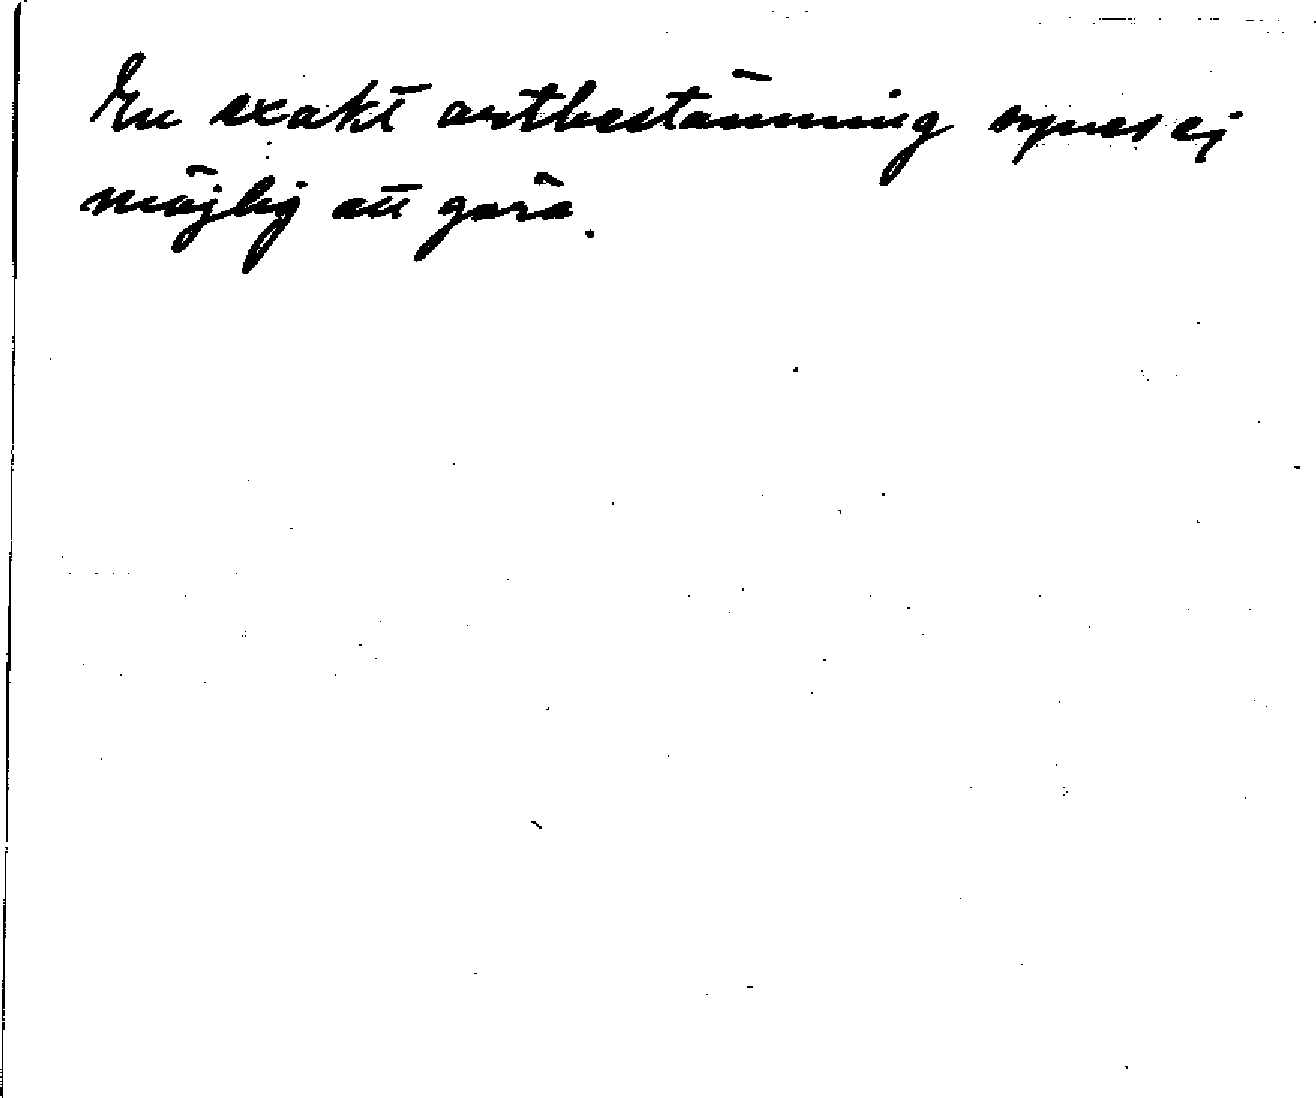 En exakt artbestämning synes ej
möjlig att göra.